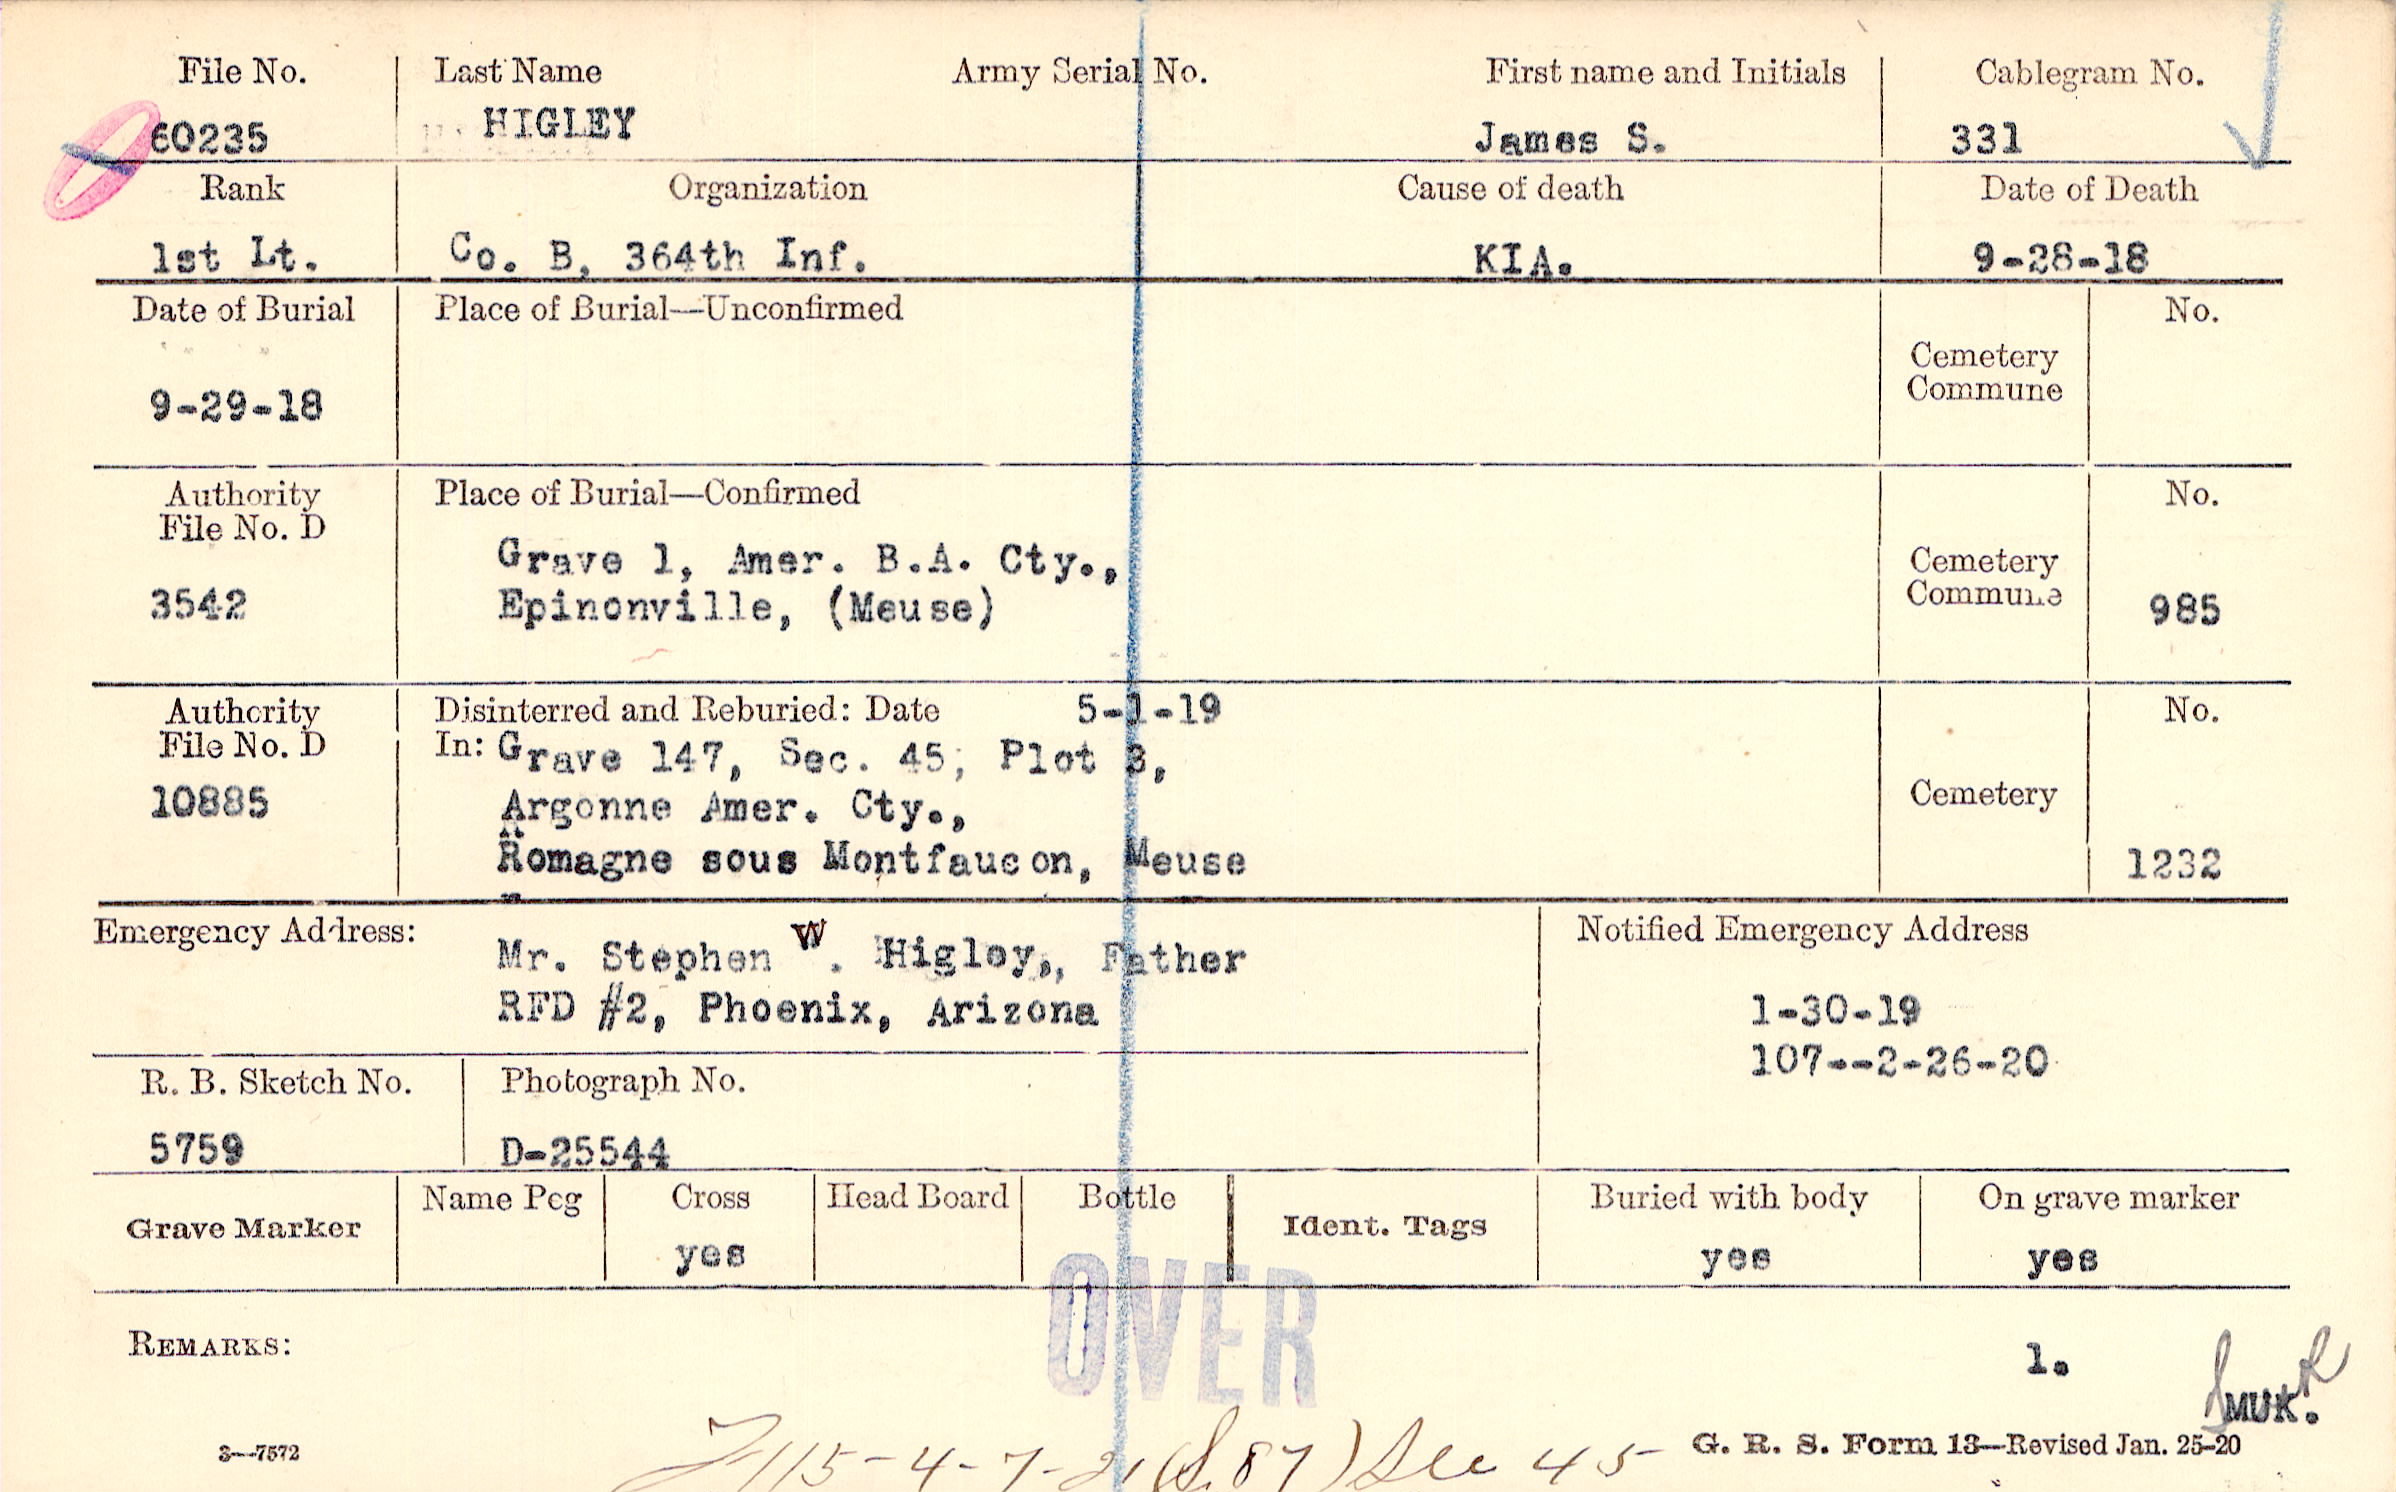 File No. Last Name Army Serial No. First name and Initials Cablegram No.
60235 HIGLEY James S. 331
Rank Organization Cause of death Date of Death
1st Lt. Co. B, 364th Inf. KIA. 9-28-18
Date of Burial Place of Burial—Unconfirmed No.
Cemetery
Commune
9-29-18
Authority Place of Burial—Confirmed No.
File No. D
Grave 1, Amer. B.A. Cty., Cemetery
3542 Epinonville, (Meuse) Commune 985
Authority Disinterred and Reburied: Date 5-1-19 No.
File No. D In: Grave 147, Sec. 45, Plot 3,
10885 Argonne Amer. Cty., Cemetery
Romagne sous Montfaucon, Meuse 1232
Emergency Address: Notified Emergency Address
Mr. Stephen W. Higley, Father
RFD #2, Phoenix, Arizona 1-30-19
107--2-26-20
R. B. Sketch No. Photograph No.
5759 D-25544
Grave Marker Name Peg Cross Head Board Bottle Ident. Tags Buried with body On grave marker
yes yes yes
OVER
REMARKS: 1.
MUK.
3—7572 G. R. S. Form 13—Revised Jan. 25-20
115-4-7-21 (S.87) Sec 45